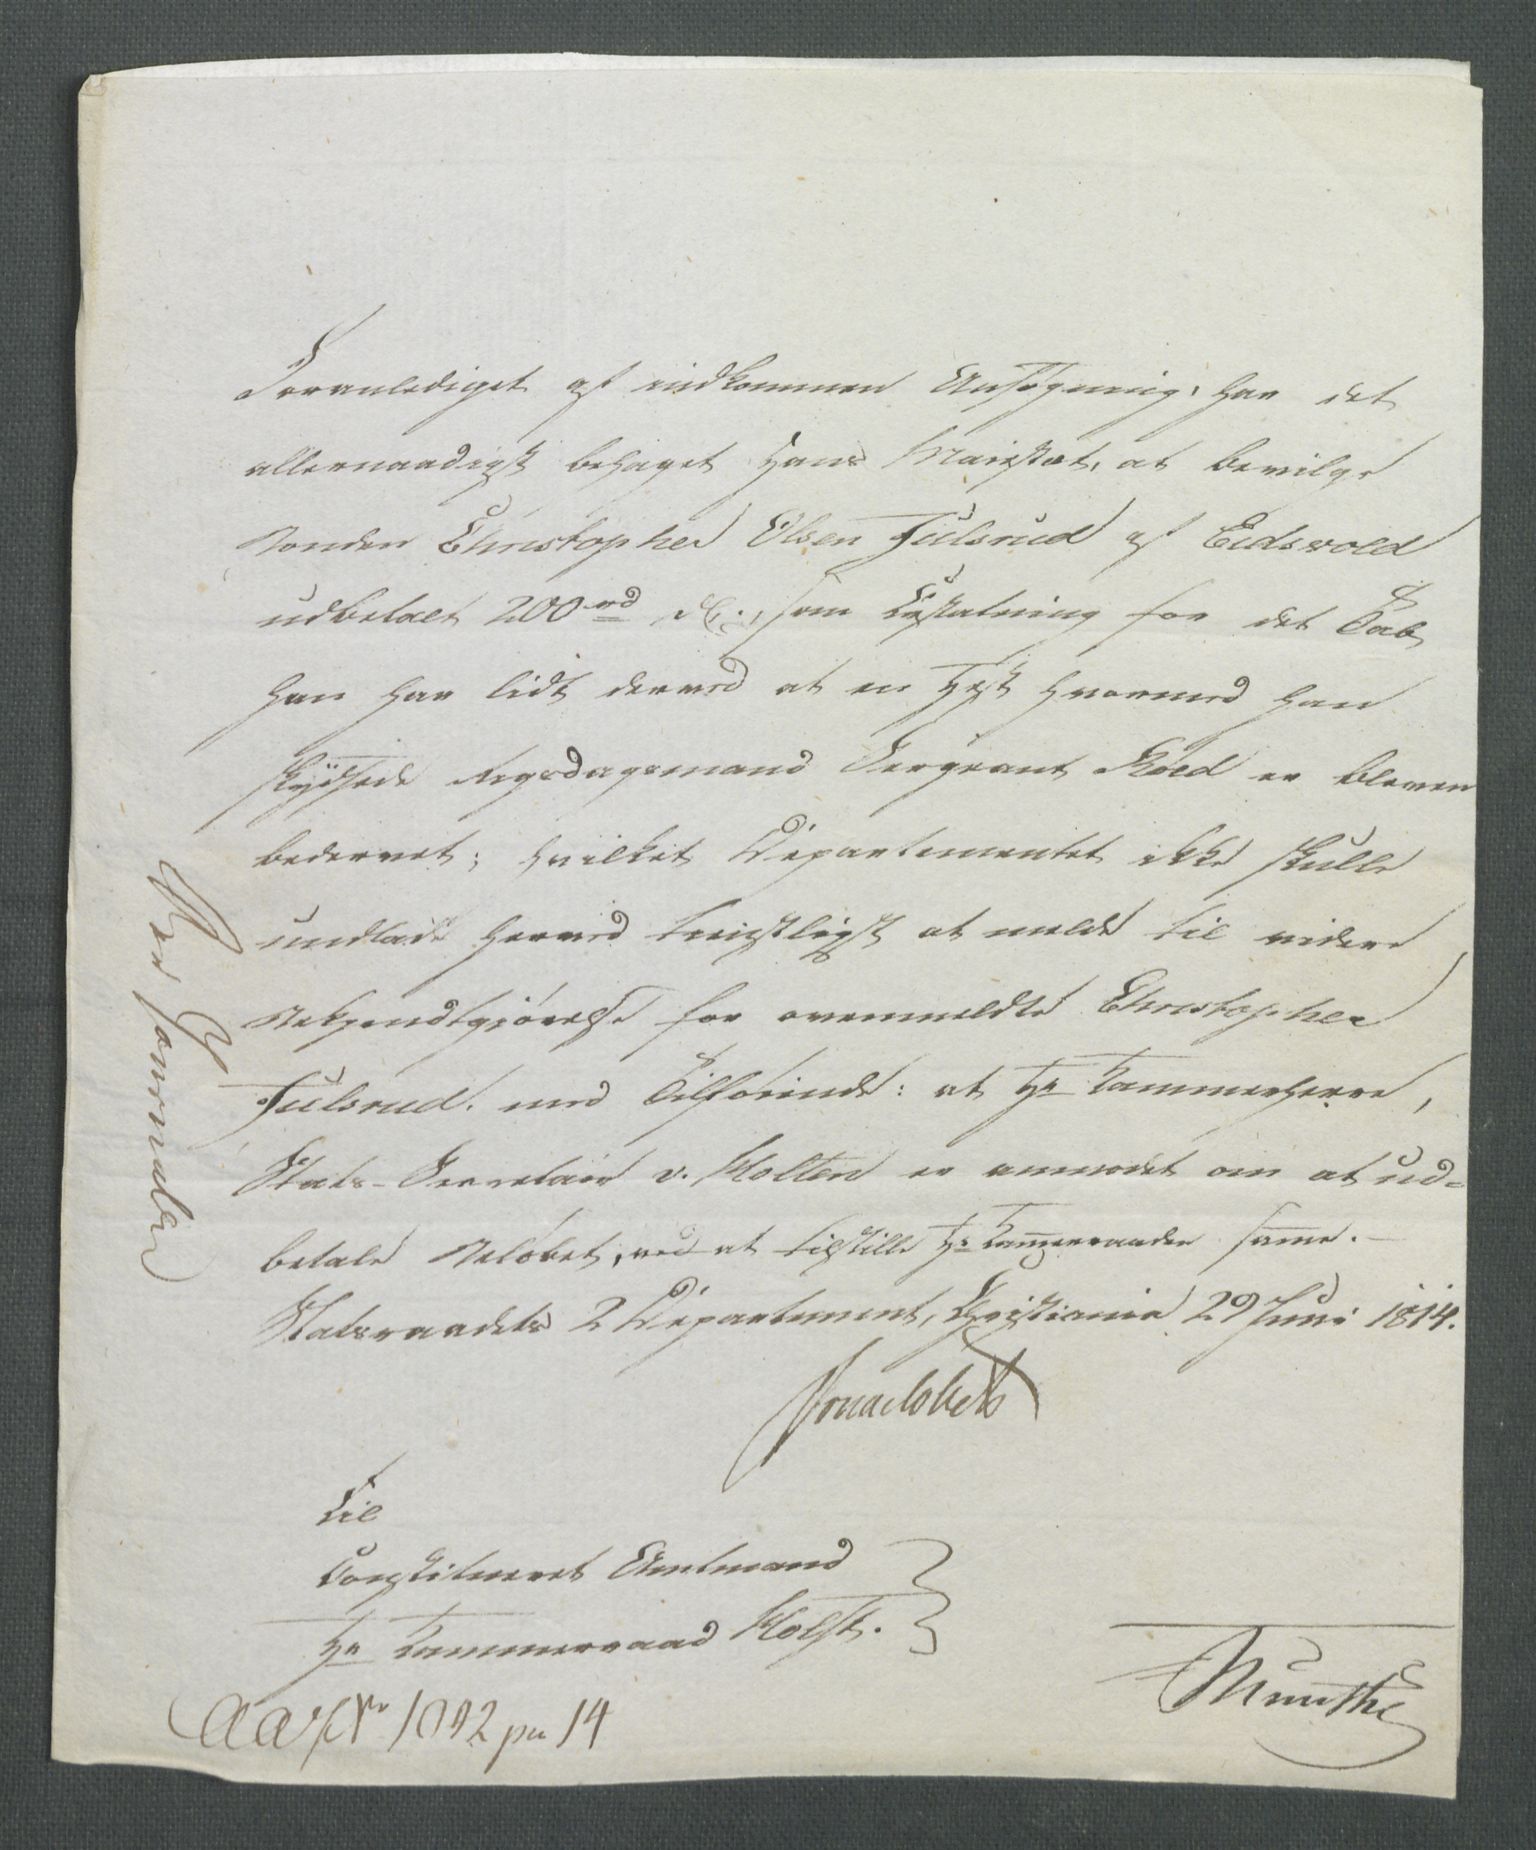 Foranlediget af indkommen Ansøgning, har det
allernaadigst behaget Hans Maiestæt, at bevilge
Bonden Christopher Olsen Julsrud af Eidsvold
udbetalt 200 rd som Erstatning for det Tab
han har lidt derved at en Hest hvormed han
skydsede Rigsdagsmand Sergeant Hoed er bleven
bedervet; hvilket Departementet ikke skulle
undlade herved tienstligst at melde til videre
Bekjendtgjørelse for ovenmeldte Christopher
Julsrud. med Tilføiende: at Hr Kammerherre,
Stats-Secretair v. Holten er anmodet om at ud=
betale Beløbet, ved at tilstille Hr Kammerraaden samme.
Statsraadets 2 Departement, Christiania 29 Juni 1814.
Til
Constitueret Amtmand
Hr Kammerraad Holst.
Munthe
No 1092 pr 14
Her Journaler